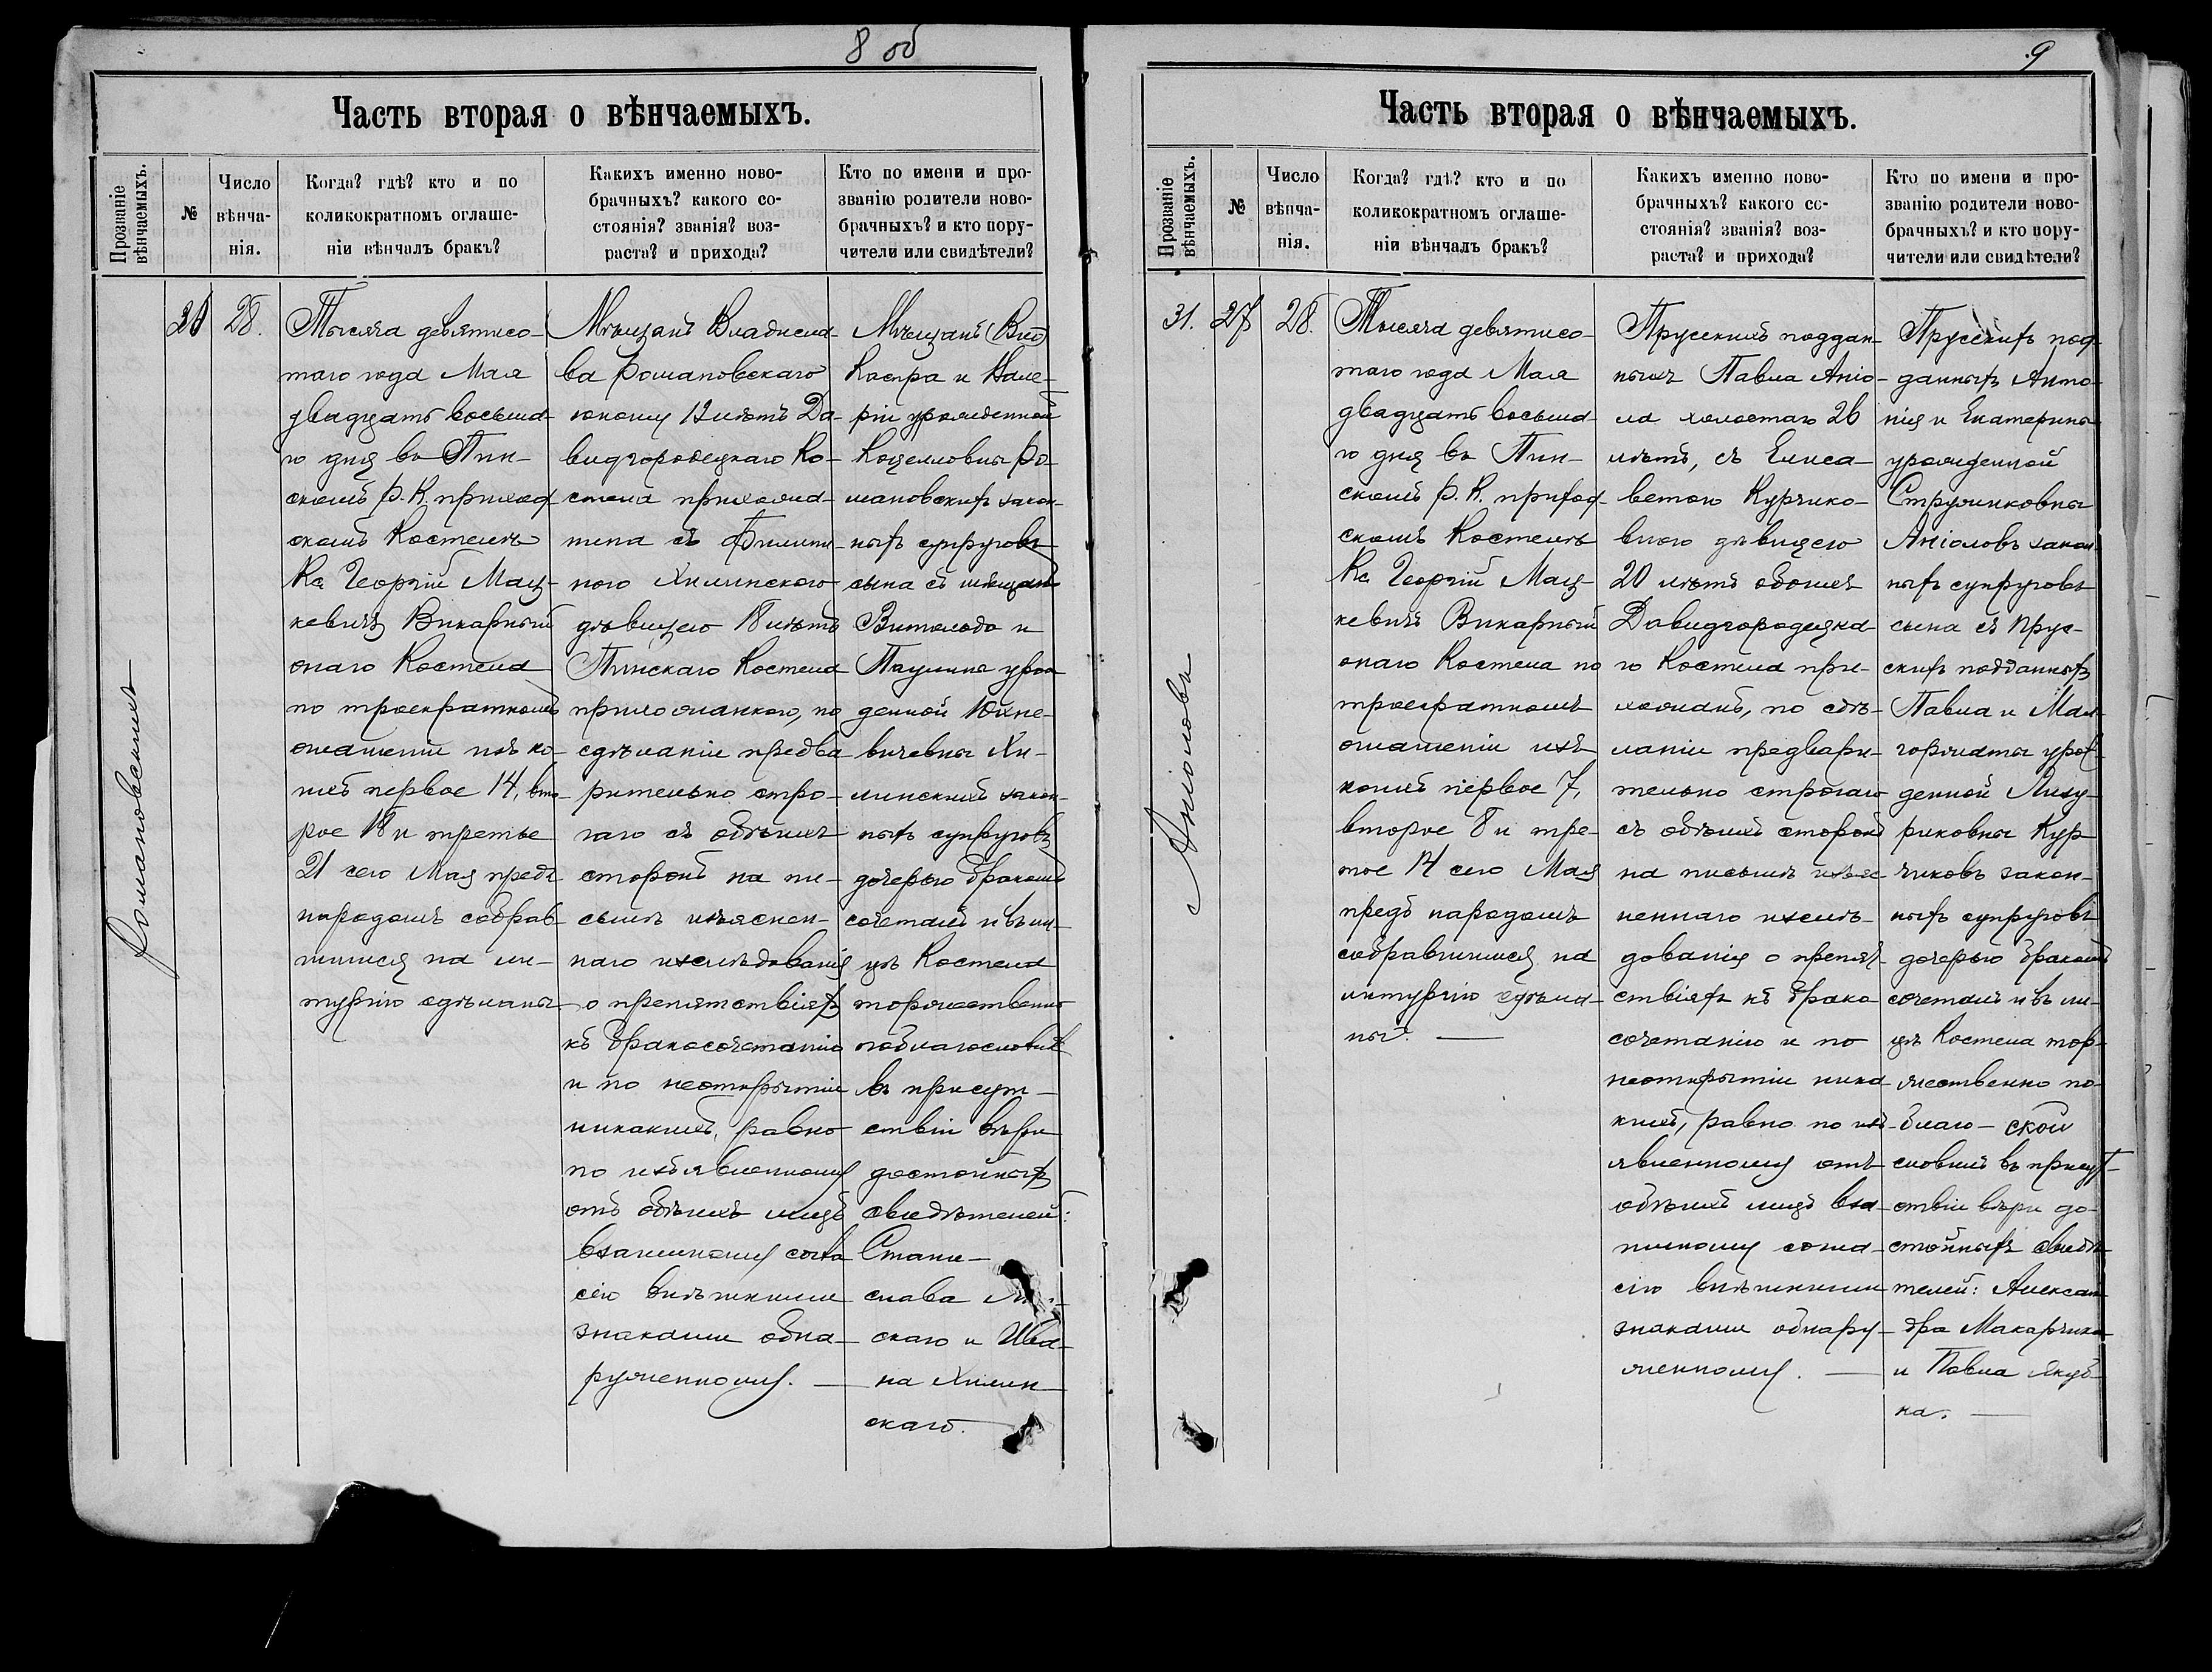 8 об
Часть вторая о вѣнчаемыхъ.
Прозваніе вѣнчаемыхъ.
№
Число вѣнча-нія.
Когда? гдѣ? кто и по
коликократномъ оглаше-
ніи вѣнчалъ бракъ?
Какихъ именно ново-
брачныхъ? какого со-
стоянія? званія? воз-
раста? и прихода?
Кто по имени и про-
званію родители ново-
брачныхъ? и кто пору-
чители или свидѣтели?
Романовскихъ
26
28.
Тысяча девятисо-
таго года Мая
двадцать восьма-
го дня въ Пин-
скомъ Р. К. приход
скомъ Костелѣ
Кс Георгій Мац-
кевичъ Викарный
онаго Костела
по троекратномъ
оглашеніи изъ ко-
ихъ первое 14, вто-
рое 18 и третье
21 сего Мая предъ
народомъ собрав-
шимися на ли-
тургію сдѣланы
Мѣщанъ Владисла-
ва Романовскаго
юношу лѣтъ Да-
видгородецкаго Ко-
стела прихожа-
нина съ
ного Хилинскою
дѣвицею 18 лѣтъ
Пинскаго Костела
прихожанкою, по
сдѣланіи предва
рительно стро-
гаго съ обѣихъ
сторонъ на пи-
сьмѣ изъяснен-
наго изслѣдованія
о препятствіяхъ
къ бракосочетанію
и по неоткрытіи
никакихъ, равно
по изъявленному
отъ обѣихъ лицъ
взаимному согла
сію внѣшними
знаками обна-
руженному. —
Мѣщанъ
Каспра и Вале-
ріи урожденной
Ро-
мановскихъ закон-
ныхъ супруговъ
сына съ мѣщанъ
Витольда и
Паулины урож
денной Юхне-
вичевны Хи-
линскихъ закон-
ныхъ супруговъ
дочерью бракомъ
сочеталъ и въ ли-
цѣ Костела
торжественно
поблагословилъ
въ присут-
ствіи вѣры
достойныхъ
свидѣтелей:
Стани-
слава
скаго и Ива-
на Хилин-
скаго.
9
Часть вторая о вѣнчаемыхъ.
Прозваніе вѣнчаемыхъ.
№
Число вѣнча-нія.
Когда? гдѣ? кто и по
коликократномъ оглаше-
ніи вѣнчалъ бракъ?
Какихъ именно ново-
брачныхъ? какого со-
стоянія? званія? воз-
раста? и прихода?
Кто по имени и про-
званію родители ново-
брачныхъ? и кто пору-
чители или свидѣтели?
Аніоловъ
31.
27
28.
Тысяча девятисо-
таго года Мая
двадцать восьма-
го дня въ Пин-
скомъ Р. К. приход-
скомъ Костелѣ
Кс Георгій Мац-
кевичъ Викарный
онаго Костела по
троекратномъ
оглашеніи изъ
коихъ первое 7,
второе 8 и тре-
тье 14 сего Мая
предъ народомъ
собравшимися на
литургію сдѣла-
ны. —
Прусскихъ поддан-
ныхъ Павла Аніо-
ла холостаго 26
лѣтъ, съ Елиса-
ветою Курчико-
вною дѣвицею
20 лѣтъ обоихъ
Давидгородецка-
го Костела при-
хожанъ, по сдѣ-
ланіи предвари-
тельно строгаго
съ обѣихъ сторонъ
на письмѣ изъяс-
неннаго изслѣ-
дованія о препят-
ствіяхъ къ брако
сочетанію и по
неоткрытіи ника-
кихъ, равно по изъ-
явленному отъ
обѣихъ лицъ вза-
имному согла-
сію внѣшними
знаками обнару-
женному. —
Прусскихъ под-
данныхъ Анто-
нія и Екатерины
урожденной
Стружиковны
Аніоловъ закон-
ныхъ супруговъ
сына съ Прус-
скихъ подданныхъ
Павла и Мал-
горжаты урож-
денной
Кур
чиковъ закон-
ныхъ супруговъ
дочерью бракомъ
сочеталъ и въ ли-
цѣ Костела тор-
жественно по-
благо-
словилъ въ присут-
ствіи вѣры до-
стойныхъ свидѣ-
телей: Александ-
дра Макарчика
и Павла Якуб-
ка. —